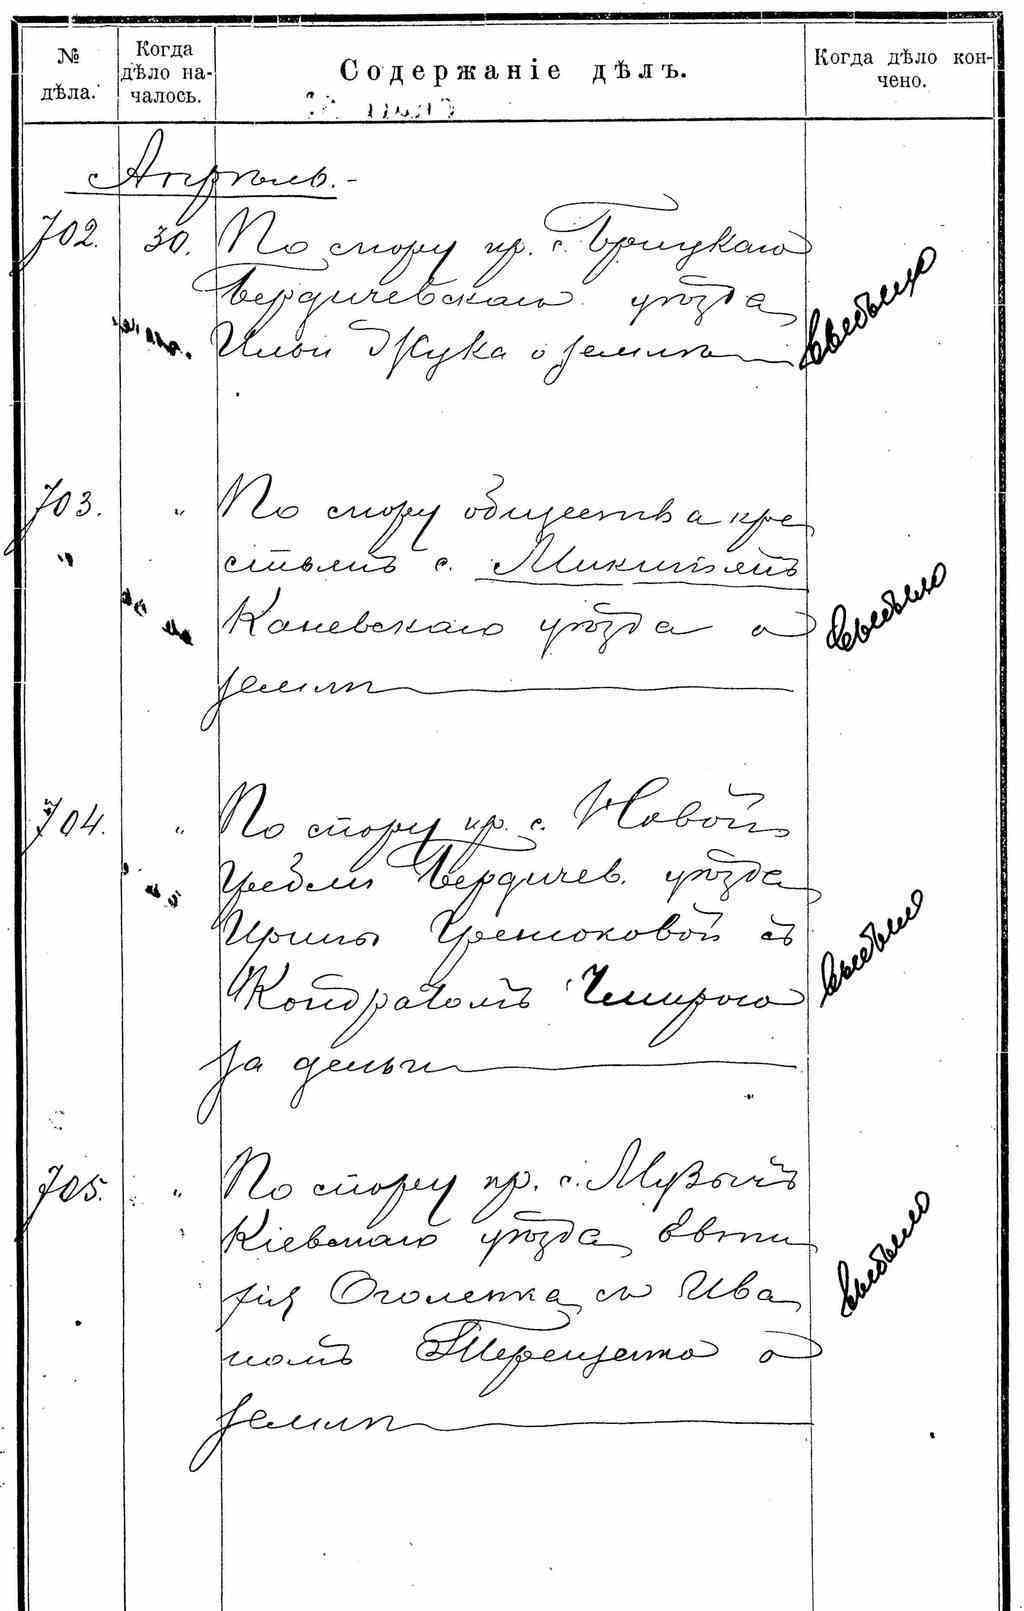 № дѣла.
Когда дѣло на-
чалось.
Содержаніе дѣлъ.
Когда дѣло кон-
чено.
Апрѣль.-
702. 30. По спору кр. с. Брицкаго
Бердичевскаго уѣзда
Ильи Жука о землѣ выбыло
703. " По спору общества кре
стьянъ с. Микитянъ
Каневскаго уѣзда о выбыло
землѣ
704. " По спору кр. с. Новой
Гребли Бердичев. уѣзда
Ирины съ выбыло
Кондратомъ
за деньги
705. " По спору кр. с. Музычъ
Кіевскаго уѣзда Евти
фія Оголенка съ Ива выбыло
номъ Терещенко о
землѣ